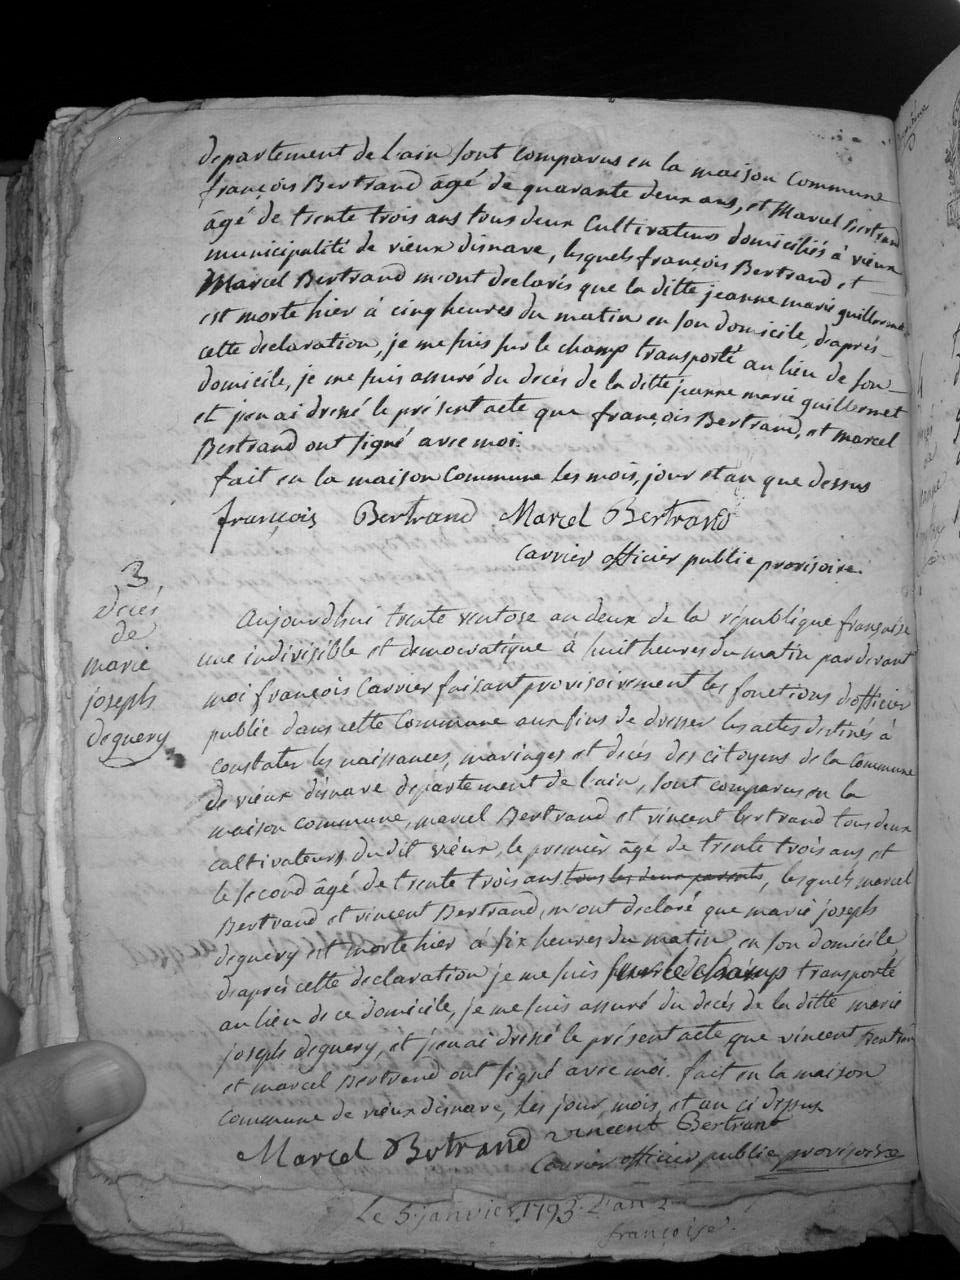 departement de L'ain sont comparus en la maison Commune
françois Bertrand âgé de quarante deux ans, et Marcel Bertrand
âgé de trente trois ans tous deux Cultivateurs domiciliés à vieux
municipalité de vieux disnave, lesquels françois Bertrand et
Marcel Bertrand m'ont declarés que la ditte jeanne marie guillermet
est morte hier à cinq heures du matin en son domicile, d'après
cette declaration, je me suis sur le champ transporté au lieu de son
domicile, je me suis assuré du decès de la ditte jeanne marie guillermet
et j'en ai dressé le présent acte que françois Bertrand, et marcel
Bertrand ont signé avec moi.
fait en la maison Commune les mois, jour et an que dessus
françois Bertrand Marcel Bertrand
Carrier officier public provisoire.
3
decés
de
marie
joseph
deguery
Aujourdhui trente ventose an deux de la république française
une indivisible et democratique à huit heures du matin pardevant
moi françois Carrier faisant provisoirement les fonctions d'officier
public dans cette Commune aux fins de dresser les actes destinés à
constater les naissances, mariages et decès des citoyens de la Commune
de vieux disnave departement de l'ain, sont comparus en la
maison commune, marcel Bertrand et vincent bertrand tous deux
cultivateurs dudit vieux, le premier âgé de trente trois ans et
le second âgé de trente trois ans tous les deux parents, lesquels marcel
Bertrand et vincent Bertrand, m'ont declaré que marie joseph
deguery est morte hier à six heures du matin, en son domicile
d'après cette declaration je me suis sur le champ transporté
au lieu de ce domicile, je me suis assuré du decès de la ditte marie
joseph deguery, et j'en ai dressé le présent acte que vincent Bertrand
et marcel Bertrand ont signé avec moi. fait en la maison
commune de vieux disnave, les jour, mois, et an ci dessus
Marcel Bertrand vincent Bertrant
Carrier officier public provisoire
Le 5 janvier 1793. L'an 2
françoise.